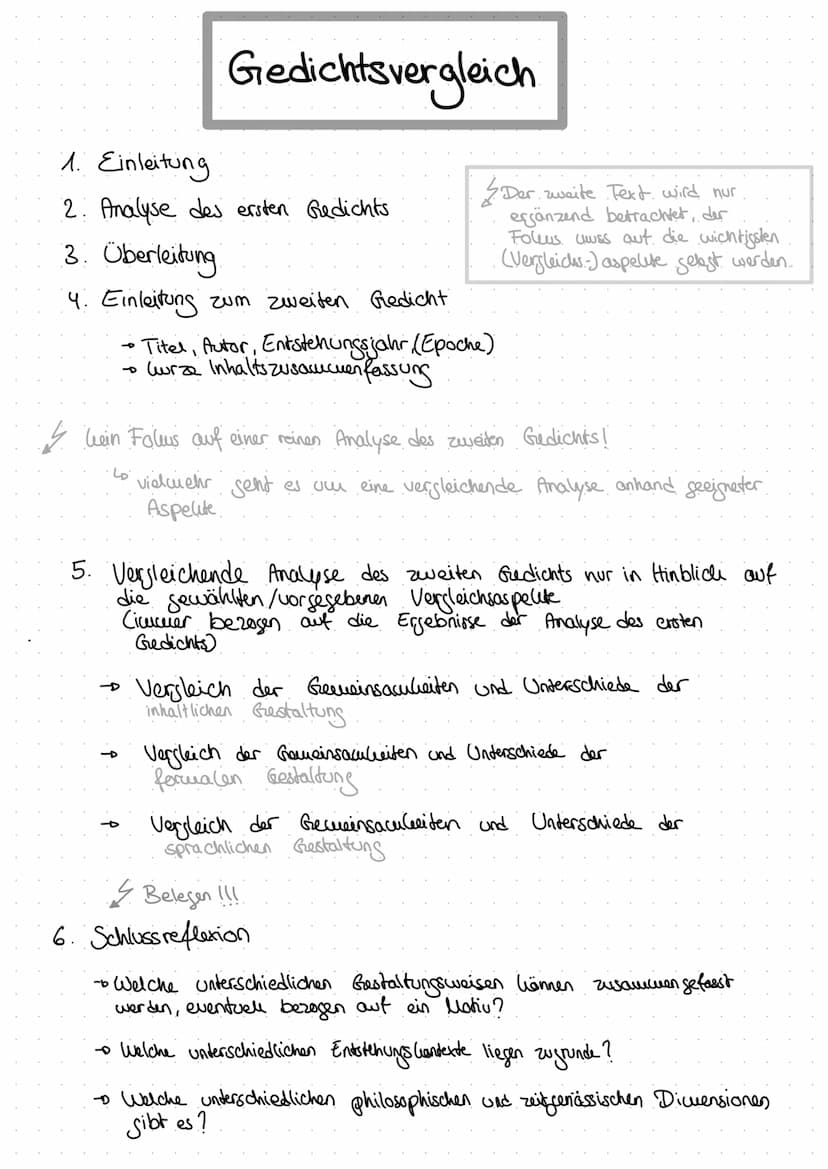 Gedichtsvergleich
1. Einleitung
2. Analyse des ersten Gedichts
3. Überleitung
4. Einleitung zum zweiten Gedicht
→ Titel, Autor, Entstehungsjahr (Epoche)
→ kurze Inhaltszusammenfassung
Der zweite Text wird nur
ergänzend betrachtet, der
Fokus muss auf die wichtigsten
(Vergleichs-)aspekte gelegt werden.
kein Fokus auf einer reinen Analyse des zweiten Gedichts!
↳ vielmehr geht es um eine vergleichende Analyse anhand geeigneter
Aspekte
5. Vergleichende Analyse des zweiten Gedichts nur in Hinblick auf
die gewählten/vorgegebenen Vergleichsaspekte
(immer bezogen auf die Ergebnisse der Analyse des ersten
Gedichts)
→ Vergleich der Gemeinsamkeiten und Unterschiede der
inhaltlichen Gestaltung
→ Vergleich der Gemeinsamkeiten und Unterschiede der
formalen Gestaltung
→ Vergleich der Gemeinsamkeiten und Unterschiede der
sprachlichen Gestaltung
Belegen!!!
6. Schlussreflexion
→ Welche unterschiedlichen Gestaltungsweisen können zusammengefasst
werden, eventuell bezogen auf ein Motiv?
→ Welche unterschiedlichen Entstehungskontexte liegen zugrunde?
→ Welche unterschiedlichen philosophischen und zeitgenässischen Dimensionen
gibt es?